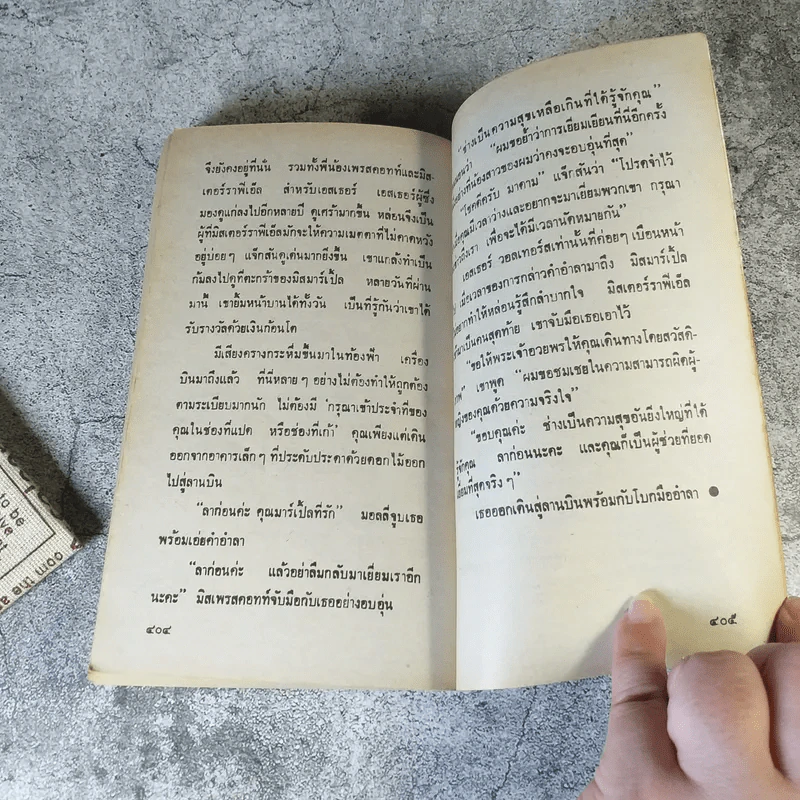 จึงยังคงอยู่ที่นั่น รวมทั้งพี่น้องเพรสคอทท์และมิส-
เตอร์ราฟีเอ็ล สำหรับเอสเธอร์ เอสเธอร์ผู้ซึ่ง
มองดูแก่ลงไปอีกหลายปี ดูเศร้ามากขึ้น หล่อนจึงเป็น
ผู้ที่มิสเตอร์ราฟีเอ็ลมักจะให้ความเมตตาที่ไม่คาดหวัง
อยู่บ่อยๆ แจ็กสันดูเด่นมากยิ่งขึ้น เขาแกล้งทำเป็น
ก้มลงไปดูที่ตะกร้าของมิสมาร์เปิ้ล หลายวันที่ผ่าน
มานี้ เขายิ้มหน้าบานได้ทั้งวัน เป็นที่รู้กันว่าเขาได้
รับรางวัลด้วยเงินก้อนโต
มีเสียงครางกระหึ่มขึ้นมาในท้องฟ้า เครื่อง
บินมาถึงแล้ว ที่นี่หลายๆ อย่างไม่ต้องทำให้ถูกต้อง
ตามระเบียบมากนัก ไม่ต้องมี 'กรุณาเข้าประจำที่ของ
คุณในช่องที่แปด หรือช่องที่เก้า' คุณเพียงแต่เดิน
ออกจากอาคารเล็กๆ ที่ประดับประดาด้วยดอกไม้ออก
ไปสู่ลานบิน
“ลาก่อนค่ะ คุณมาร์เปิ้ลที่รัก” มอลลี่จูบเธอ
พร้อมเอ่ยคำอำลา
“ลาก่อนค่ะ แล้วอย่าลืมกลับมาเยี่ยมเราอีก
นะคะ” มิสเพรสคอทท์จับมือกับเธออย่างอบอุ่น
๔๐๔
“ช่างเป็นความสุขเหลือเกินที่ได้รู้จักคุณ”
“ผมขอย้ำว่าการเยี่ยมเยียนที่นี่อีกครั้ง
พี่น้องสาวของผมว่าคงจะอบอุ่นที่สุด”
“โชคดีครับ มาดาม” แจ็กสันว่า “โปรดจำไว้
คุณมีเวลาว่างและอยากจะมาเยี่ยมพวกเขา กรุณา
ถึงเรา เพื่อจะได้มีเวลานัดหมายกัน”
เอสเธอร์ วอลเทอร์สเท่านั้นที่ค่อยๆ เบือนหน้า
เมื่อเวลาของการกล่าวคำอำลามาถึง มิสมาร์เปิ้ล
ทำให้หล่อนรู้สึกลำบากใจ มิสเตอร์ราฟีเอ็ล
มาเป็นคนสุดท้าย เขาจับมือเธอเอาไว้
“ขอให้พระเจ้าอวยพรให้คุณเดินทางโดยสวัสดิ-
ภาพ” เขาพูด “ผมขอชมเชยในความสามารถผิดผู้-
หญิงของคุณด้วยความจริงใจ”
“ขอบคุณค่ะ ช่างเป็นความสุขอันยิ่งใหญ่ที่ได้
รู้จักคุณ ลาก่อนนะคะ และคุณก็เป็นผู้ช่วยที่ยอด
เยี่ยมที่สุดจริงๆ”
เธอออกเดินสู่ลานบินพร้อมกับโบกมืออำลา ●
๔๐๕
to be